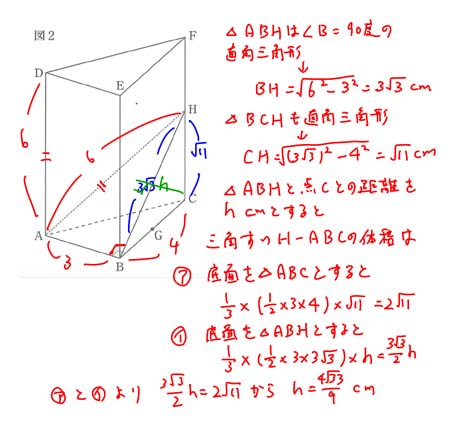 図2
F
D
E
H
A
B
C
G
6
6
3
4
√11
3√3
h
△ABHは∠B=90度の
直角三角形
BH=√(6²-3²)=3√3 cm
△BCHも直角三角形
CH=√((3√3)²-4²)=√11 cm
△ABHと点Cとの距離を
h cmとすると
三角すいH-ABCの体積は
㋐ 底面を△ABCとすると
1/3×(1/2×3×4)×√11=2√11
㋑ 底面を△ABHとすると
1/3×(1/2×3×3√3)×h=3√3/2 h
㋐と㋑より 3√3/2 h=2√11 から h=4√33/9 cm